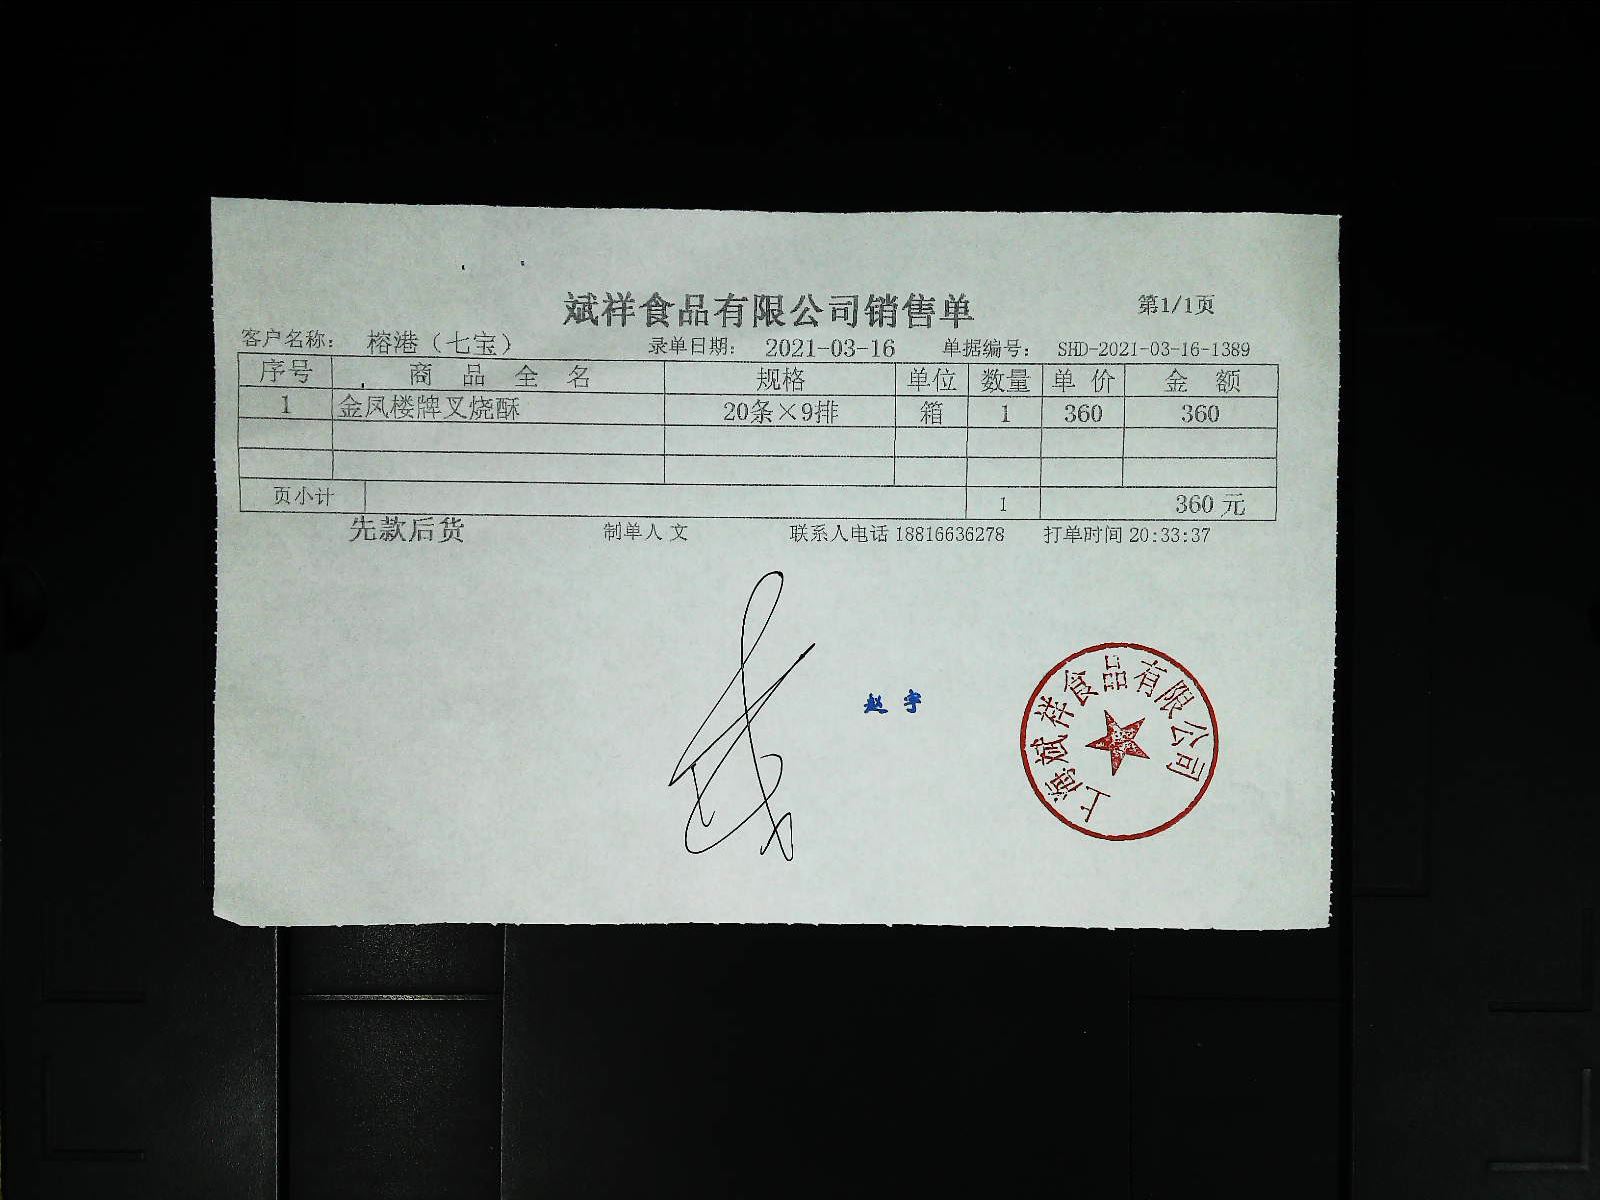 斌祥食品有限公司销售单 第1/1页
客户名称： 榕港（七宝） 录单日期： 2021-03-16 单据编号： SHD-2021-03-16-1389
序号 商 品 全 名 规格 单位 数量 单 价 金 额
1 金凤楼牌叉烧酥 20条×9排 箱 1 360 360
页小计 1 360 元
先款后货 制单人 文 联系人电话 18816636278 打单时间 20:33:37
赵 宇
上海斌祥食品有限公司